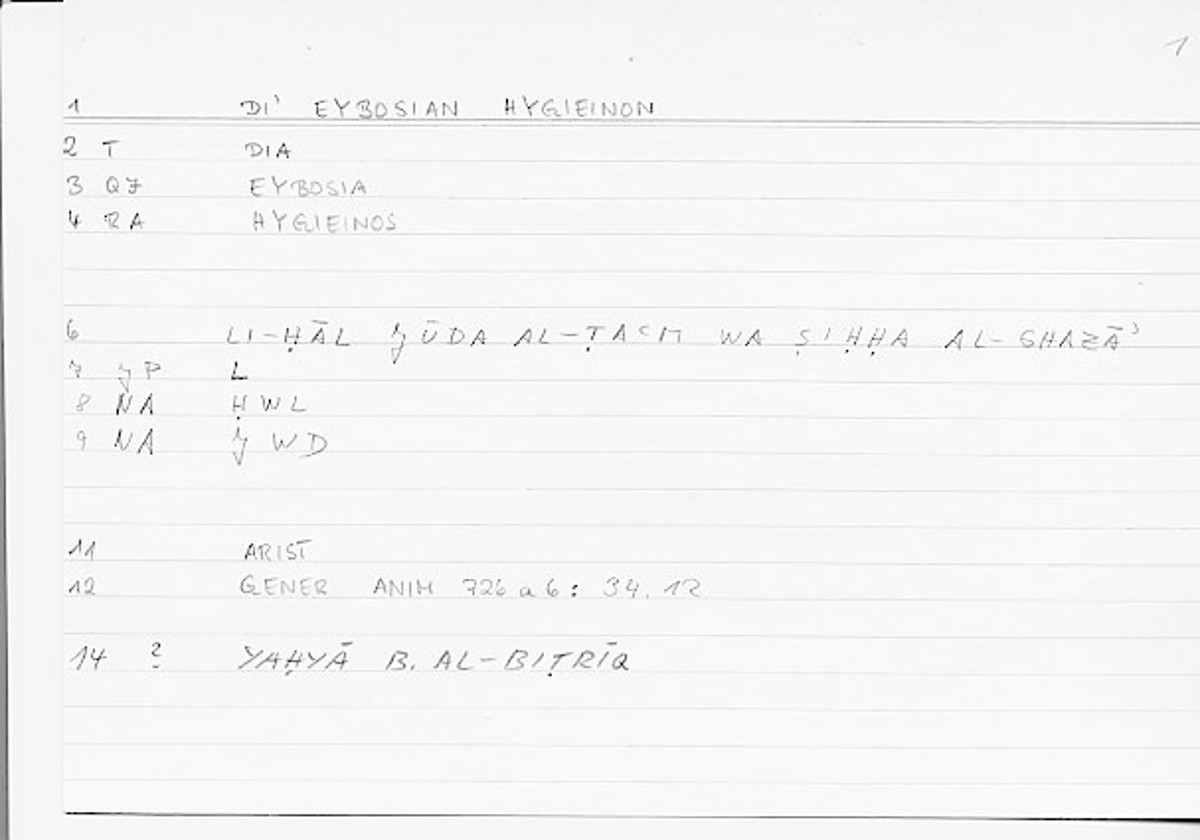 1
1 DI' EYBOSIAN HYGIEINON
2 T DIA
3 QJ EYBOSIA
4 RA HYGIEINOS
6 LI-ḤĀL JŪDA AL-ṬAʿM WA ṢIḤḤA AL-GHAZĀʾ
7 JP L
8 NA ḤWL
9 NA JWD
11 ARIST
12 GENER ANIM 726 a 6: 34.12
14 ? YAḤYĀ B. AL-BIṬRĪQ